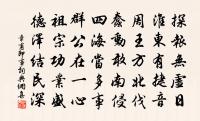 探報無虛日
淮東有捷音
周王方北伐
蠢動敢南侵
四海當多事
群公在一心
祖宗功業盛
德澤結民深
章甫即事詞典網集